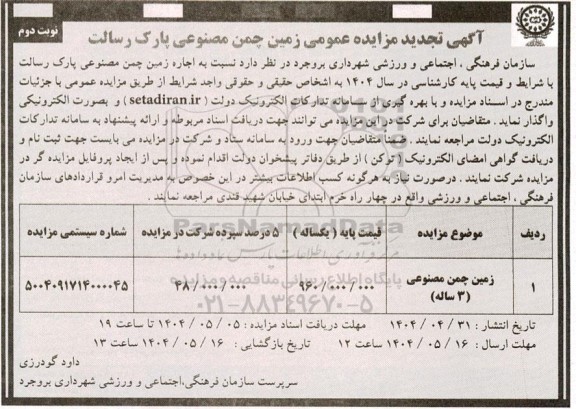 نوبت دوم
آگهی تجدید مزایده عمومی زمین چمن مصنوعی پارک رسالت
سازمان فرهنگی ، اجتماعی و ورزشی شهرداری بروجرد در نظر دارد نسبت به اجاره زمین چمن مصنوعی پارک رسالت
با شرایط و قیمت پایه کارشناسی در سال ۱۴۰۴ به اشخاص حقیقی و حقوقی واجد شرایط از طریق مزایده عمومی با جزئیات
مندرج در اسناد مزایده و با بهره گیری از سامانه تدارکات الکترونیک دولت ( setadiran.ir ) و بصورت الکترونیکی
واگذار نماید . متقاضیان برای شرکت در این مزایده می توانند جهت دریافت اسناد مربوطه و ارائه پیشنهاد به سامانه تدارکات
الکترونیک دولت مراجعه نمایند . ضمنا متقاضیان جهت ورود به سامانه ستاد و شرکت در مزایده می بایست جهت ثبت نام و
دریافت گواهی امضای الکترونیک ( توکن ) از طریق دفاتر پیشخوان دولت اقدام نموده و پس از ایجاد پروفایل مزایده گر در
مزایده شرکت نمایند . درصورت نیاز به هرگونه کسب اطلاعات بیشتر در این خصوص به مدیریت امور قراردادهای سازمان
فرهنگی ، اجتماعی و ورزشی واقع در چهار راه خرم ابتدای خیابان شهید قندی مراجعه نمایند .
ردیف موضوع مزایده قیمت پایه ( یکساله ) ۵ درصد سپرده شرکت در مزایده شماره سیستمی مزایده
۱ زمین چمن مصنوعی (۳ ساله) ۹۶۰/۰۰۰/۰۰۰ ۴۸/۰۰۰/۰۰۰ ۵۰۰۴۰۹۱۷۱۴۰۰۰۰۴۵
ParsNamadData
پایگاه اطلاع رسانی مناقصه و مزایده
۰۲۱-۸۸۳۴۹۶۷۰-۵
تاریخ انتشار : ۳۱ / ۰۴ / ۱۴۰۴ مهلت دریافت اسناد مزایده : ۰۵ / ۰۵ / ۱۴۰۴ تا ساعت ۱۹
مهلت ارسال : ۱۶ / ۰۵ / ۱۴۰۴ ساعت ۱۲ تاریخ بازگشایی : ۱۶ / ۰۵ / ۱۴۰۴ ساعت ۱۳
داود گودرزی
سرپرست سازمان فرهنگی،اجتماعی و ورزشی شهرداری بروجرد